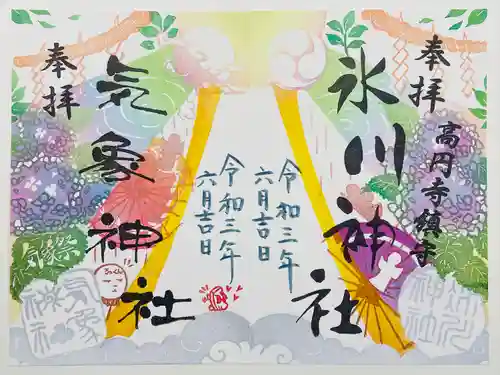 奉拝
高円寺鎮守
氷川神社
令和三年
六月吉日
令和三年
六月吉日
奉拝
気象神社
気象祭